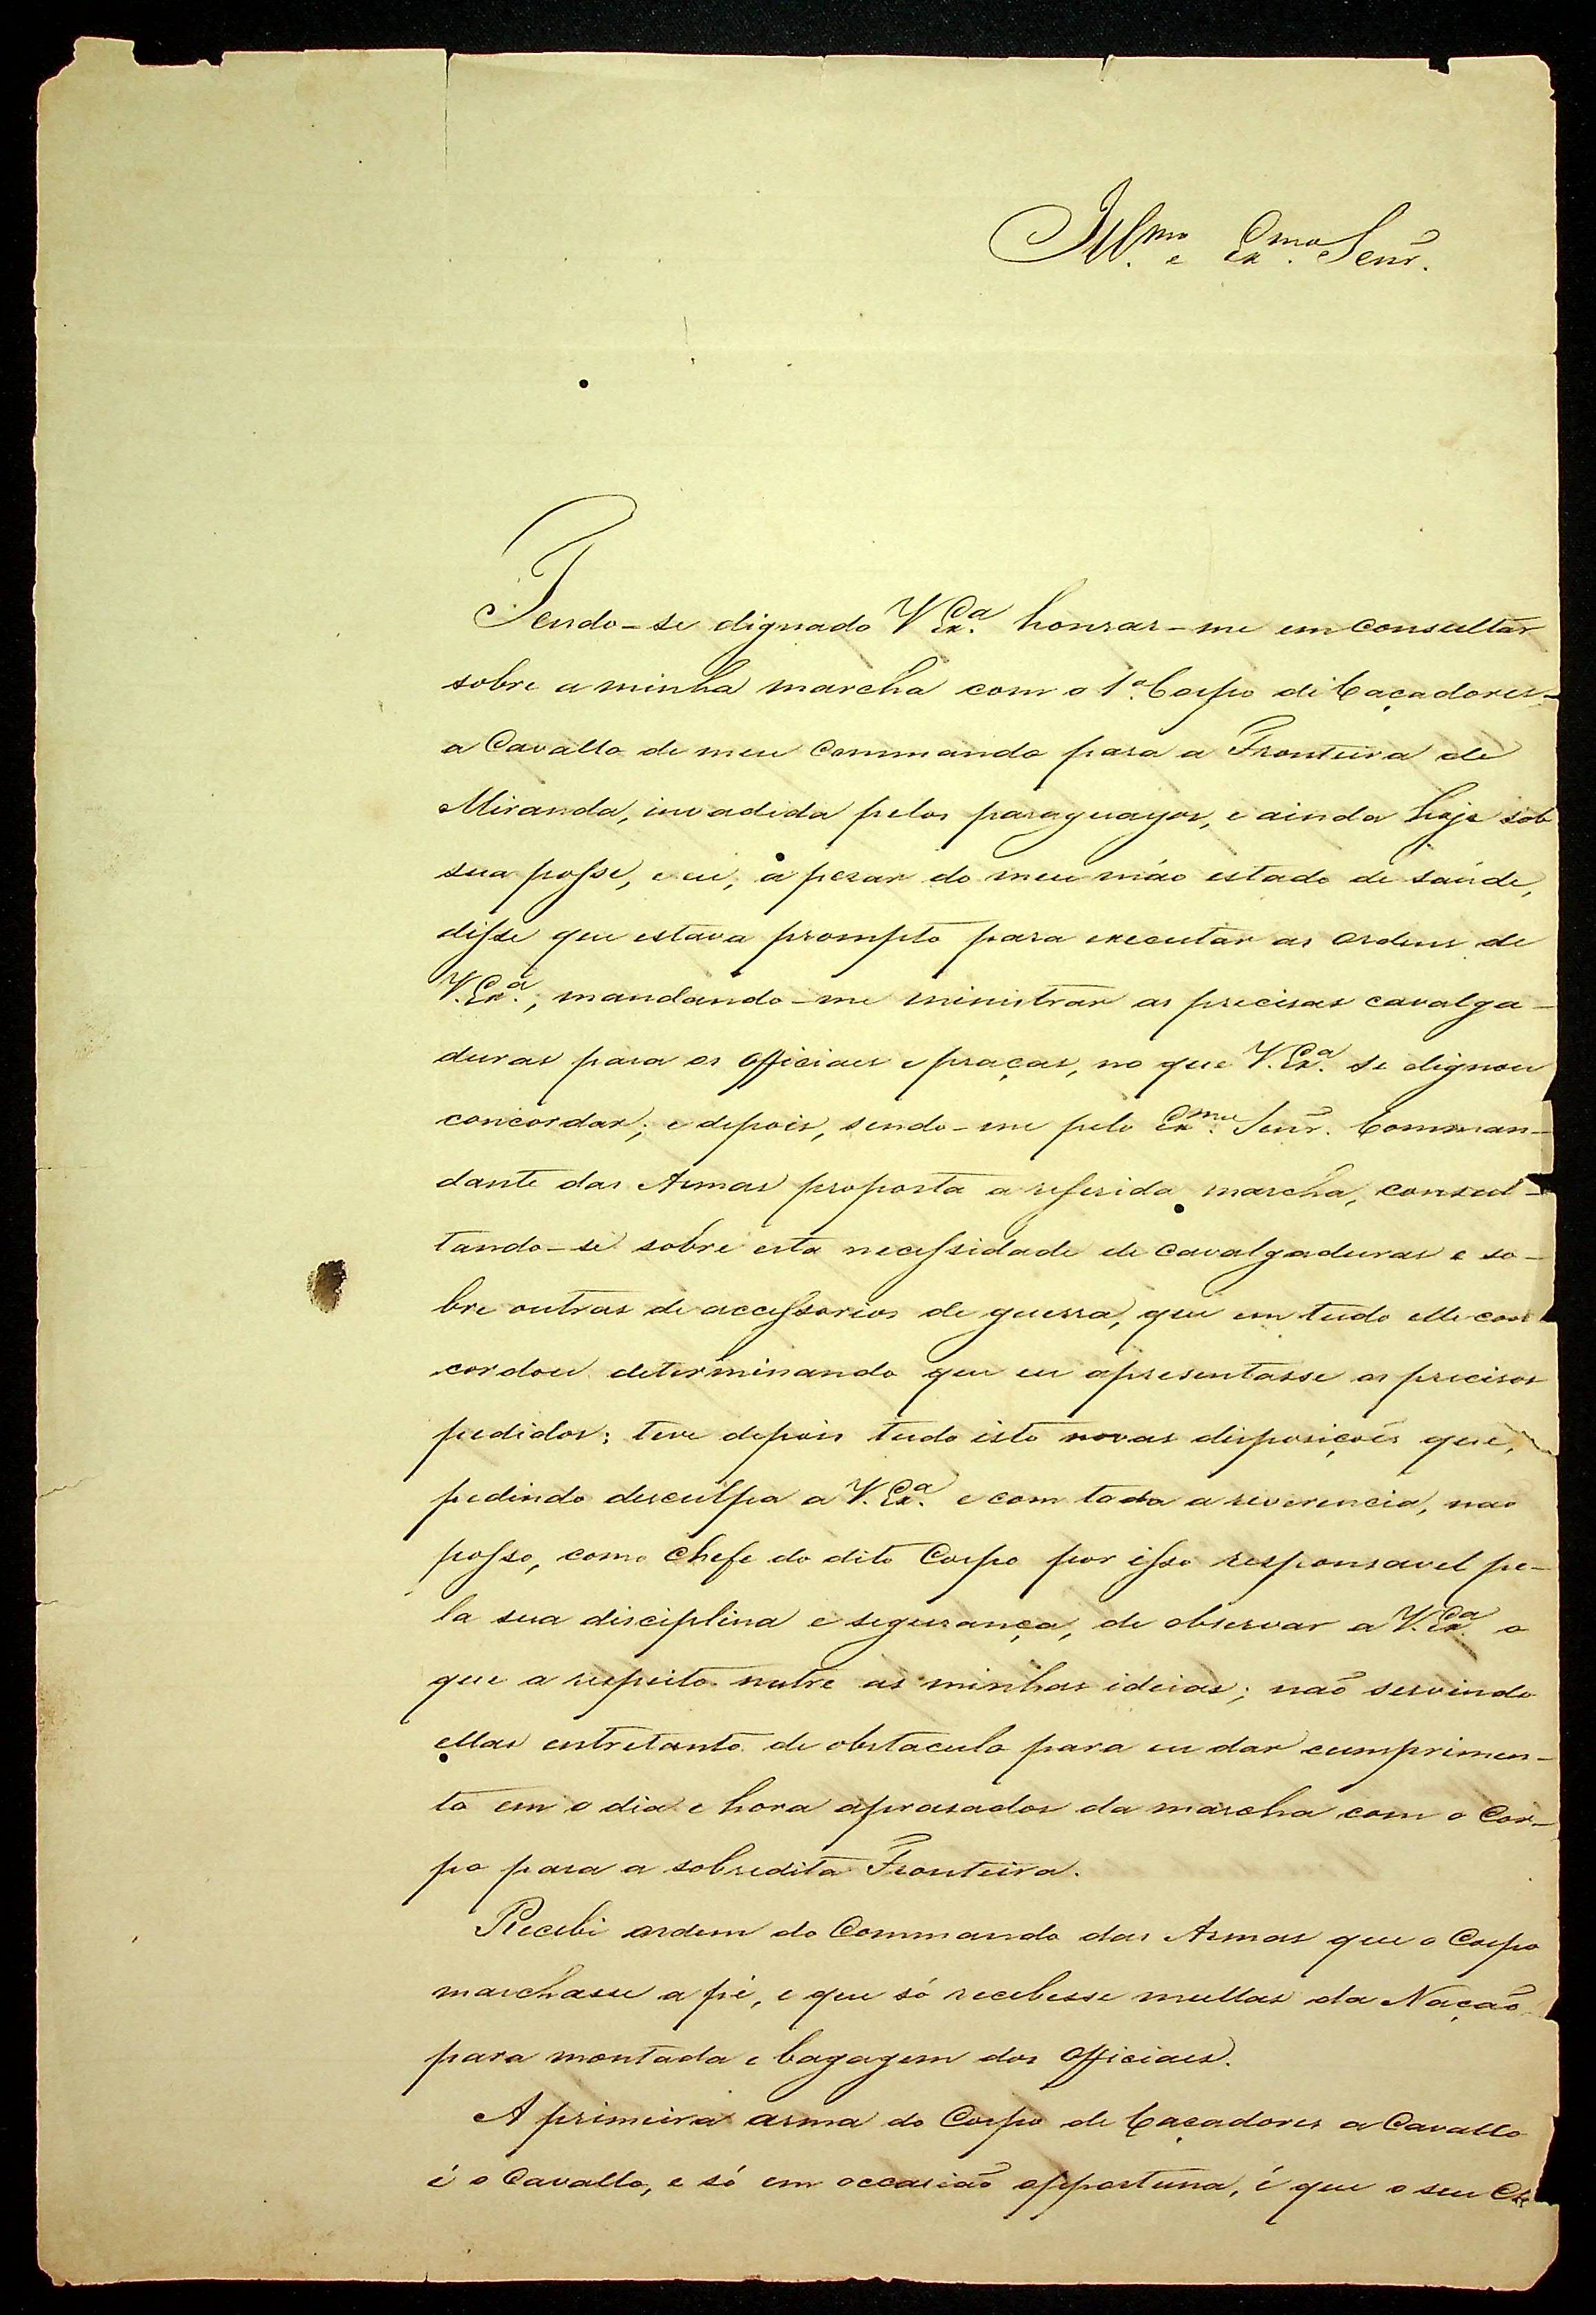 Illmo. e Exmo. Senr.
Tendo-se dignado V Exa. honrar-me em consultar
sobre a minha marcha com o 1º. Corpo de Caçadores
a Cavallo de meu Commando para a Fronteira de
Miranda, invadida pelos paraguayos, e ainda hoje sob
sua posse, e eu, a pezar do meu máo estado de saúde,
disse que estava prompto para executar as ordens de
V. Exa., mandando-me ministrar as precisas cavalga-
duras para os Officiaes e praças, no que V. Exa. se dignou
concordar; e depois, sendo-me pelo Exmo. Senr. Comman-
dante das Armas proposta a referida marcha, consul-
tando-se sobre esta necessidade de cavalgaduras e so-
bre outras de accessorios de guerra, que em tudo elle con
cordou determinando que eu apresentasse os precisos
pedidos; teve depois tudo isto novas disposições que,
pedindo desculpa a V. Exa. e com toda a reverencia, nao
posso, como Chefe do dito Corpo por isso responsavel pe-
la sua disciplina e segurança, de observar a V. Exa. o
que a respeito nutre as minhas ideias; naõ servindo
ellas entretanto de obstaculo para eu dar cumprimen-
to em o dia e hora aprasados da marcha com o Cor-
po para a sobredita Fronteira.
Recebi ordem do Commando das Armas que o Corpo
marchasse a pé, e que só recebesse mullas da Naçaõ
para montada e bagagem dos Officiaes.
A primeira arma do Corpo de Caçadores a Cavallo
é o Cavallo, e só em occasiaõ opportuna, é que o seu